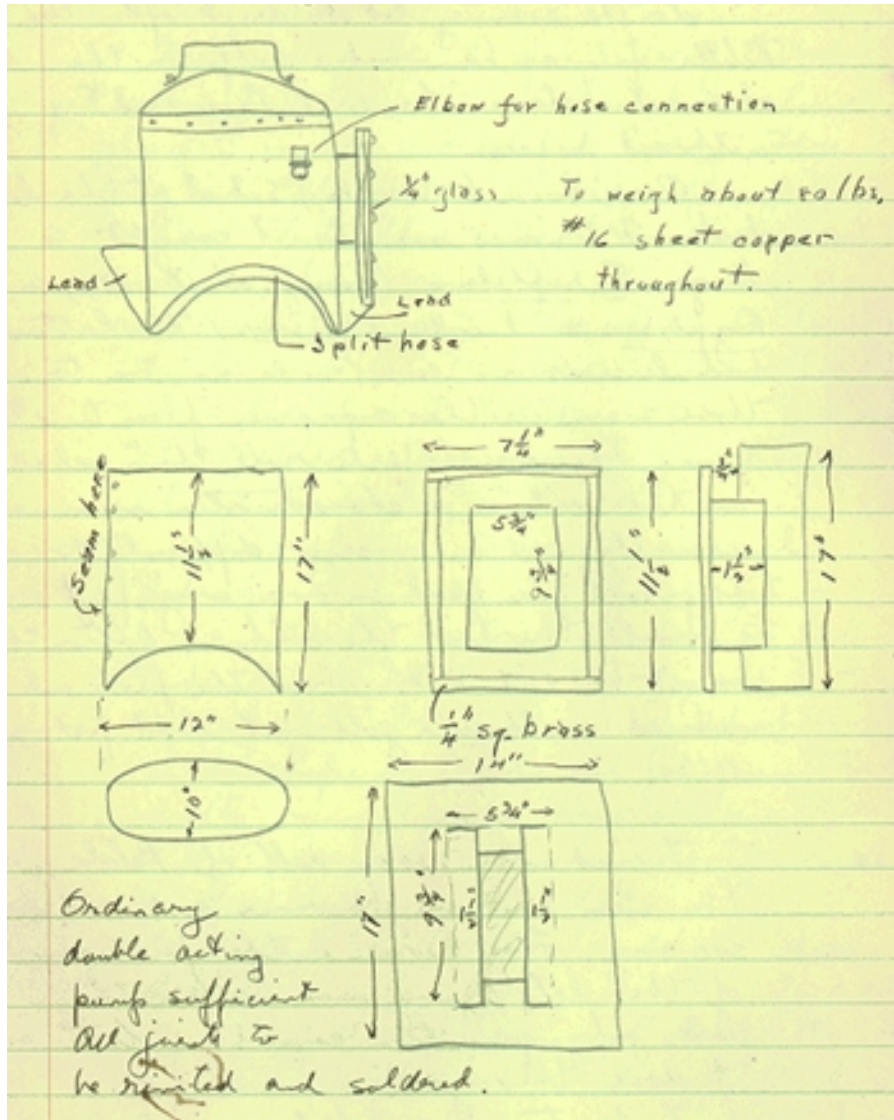 Elbow for hose connection
¼" glass
To weigh about 80 lbs,
#16 sheet copper
throughout.
Lead
Lead
Split hose
Seam here
11½"
17"
12"
10"
7¼"
5¾"
9¾"
11½"
¼" sq. brass
1½"
17"
14"
5¾"
17"
9¾"
1½"
1½"
Ordinary
double acting
pump sufficient
All joints to
be rivited and soldered.